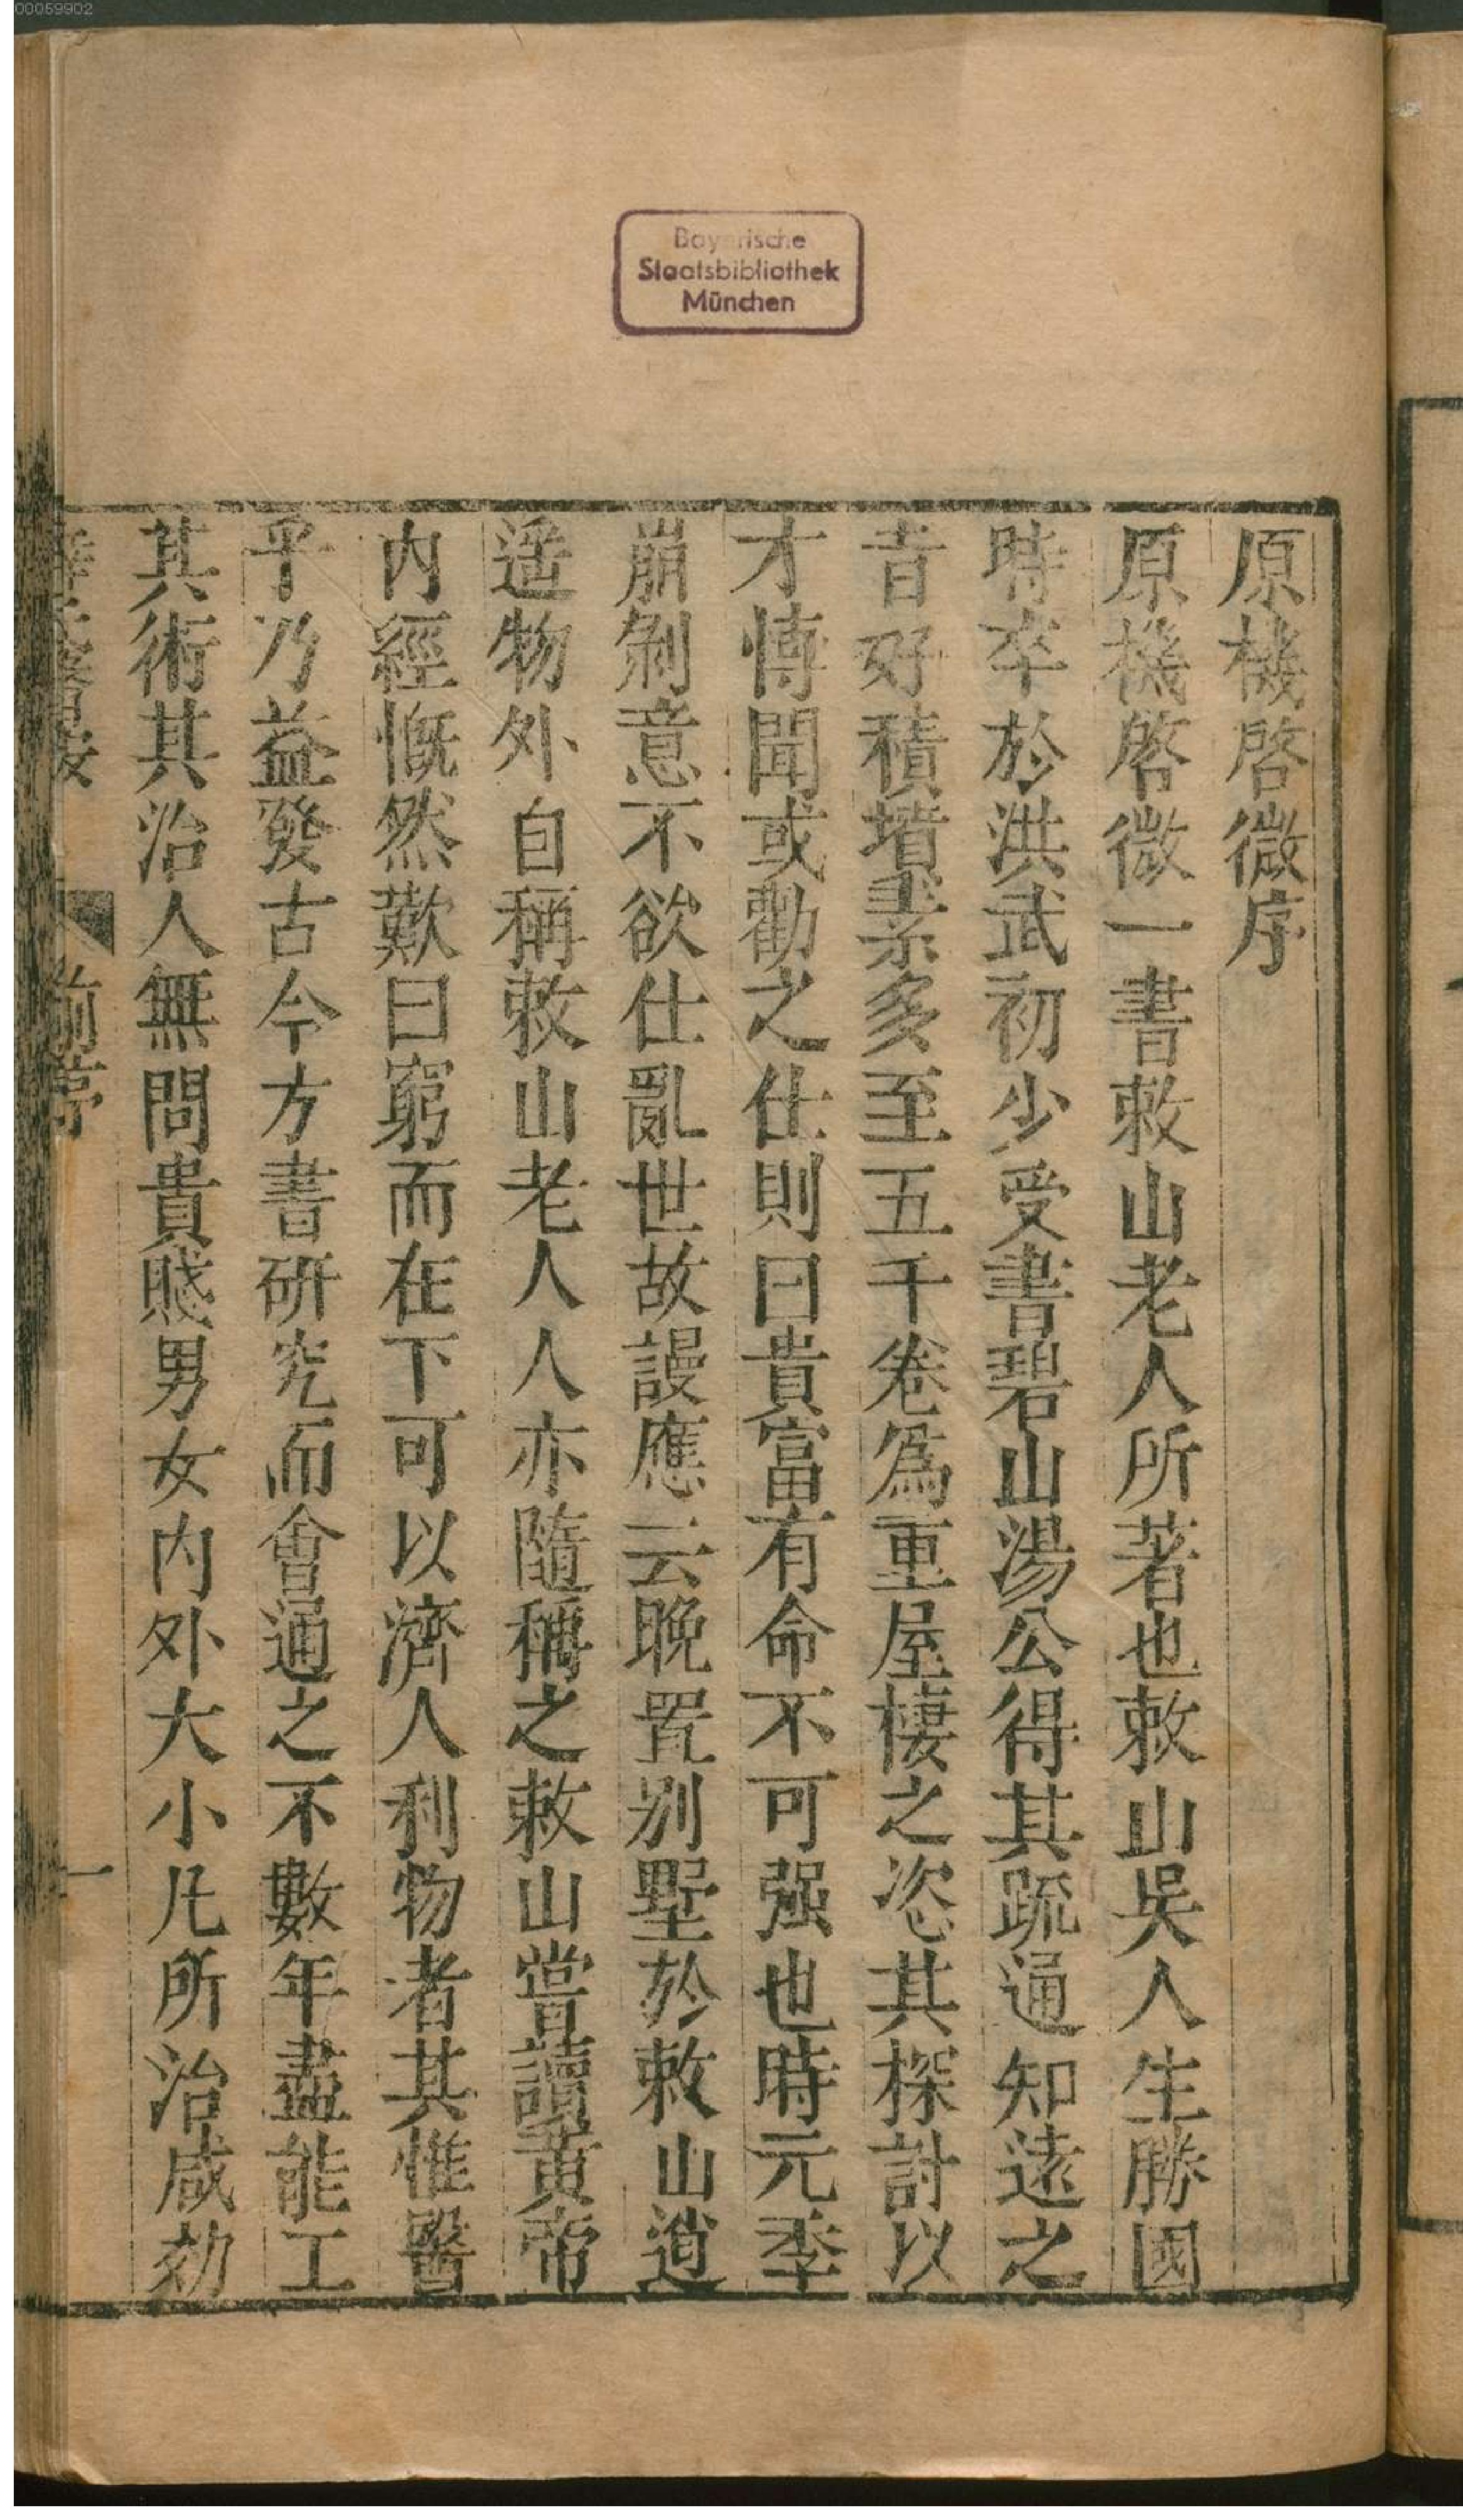 00059902
Bayerische
Staatsbibliothek
München
原機啓微序
原機啓微一書敕山老人所著也敕山吳人生勝國
時卒於洪武初少受書碧山湯公得其疏通知遠之
旨好積墳素多至五千卷爲重屋棲之恣其探討以
才博聞或勸之仕則曰貴富有命不可强也時元季
崩剝意不欲仕亂世故謾應云晚置別墅於敕山逍
遥物外自稱敕山老人人亦隨稱之敕山嘗讀黃帝
内經慨然歎曰窮而在下可以濟人利物者其惟醫
乎乃益發古今方書研究而會通之不數年盡能工
其術其治人無問貴賤男女内外大小凡所治咸効
前序
一